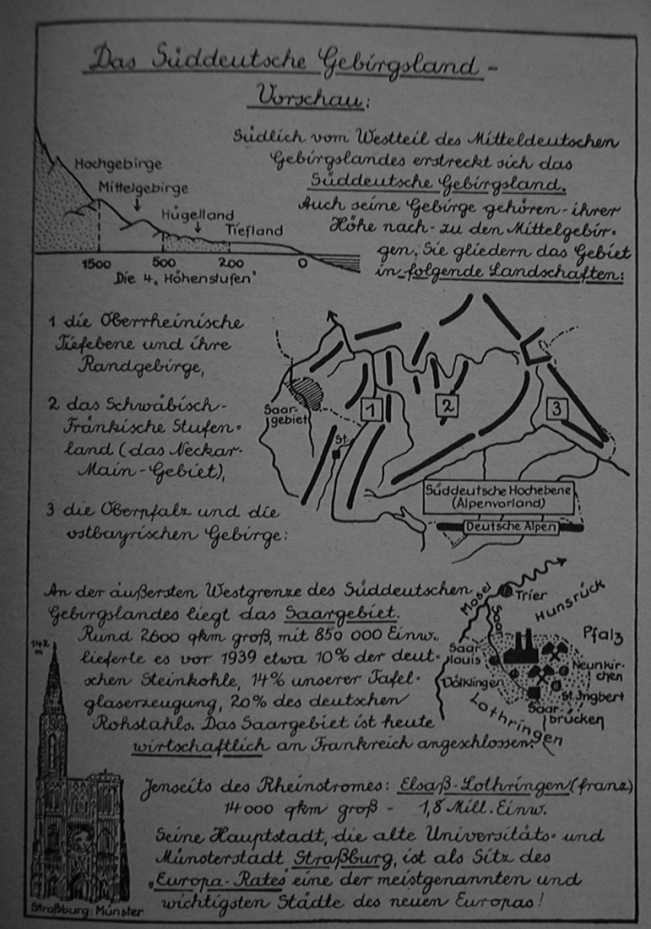 Das Süddeutsche Gebirgsland -
Vorschau:
Südlich vom Westteil des Mitteldeutschen
Gebirgslandes erstreckt sich das
Süddeutsche Gebirgsland.
Auch seine Gebirge gehören - ihrer
Höhe nach - zu den Mittelgebir-
gen. Sie gliedern das Gebiet
in folgende Landschaften:
Hochgebirge
Mittelgebirge
Hügelland
Tiefland
1500 500 200 0
Die 4 „Höhenstufen"
1 die Oberrheinische
Tiefebene und ihre
Randgebirge,
2 das Schwäbisch-
Fränkische Stufen-
land (das Neckar-
Main-Gebiet),
3 die Oberpfalz und die
ostbayrischen Gebirge:
Saar-
gebiet
St.
1
2
3
Süddeutsche Hochebene
(Alpenvorland)
Deutsche Alpen
An der äußersten Westgrenze des Süddeutschen
Gebirgslandes liegt das Saargebiet.
Rund 2600 qkm groß, mit 850 000 Einw.
lieferte es vor 1939 etwa 10% der deut-
schen Steinkohle, 14% unserer Tafel-
glaserzeugung, 20% des deutschen
Rohstahls. Das Saargebiet ist heute
wirtschaftlich an Frankreich angeschlossen.
Mosel
Trier
Hunsrück
Saar
Pfalz
Saar
louis
Neunkir-
chen
Völklingen
St. Ingbert
Saar
brücken
Lothringen
142
m
Jenseits des Rheinstromes: Elsaß-Lothringen (franz)
14 000 qkm groß - 1,8 Mill. Einw.
Seine Hauptstadt, die alte Universitäts- und
Münsterstadt Straßburg, ist als Sitz des
„Europa-Rates" eine der meistgenannten und
wichtigsten Städte des neuen Europas!
Straßburg: Münster